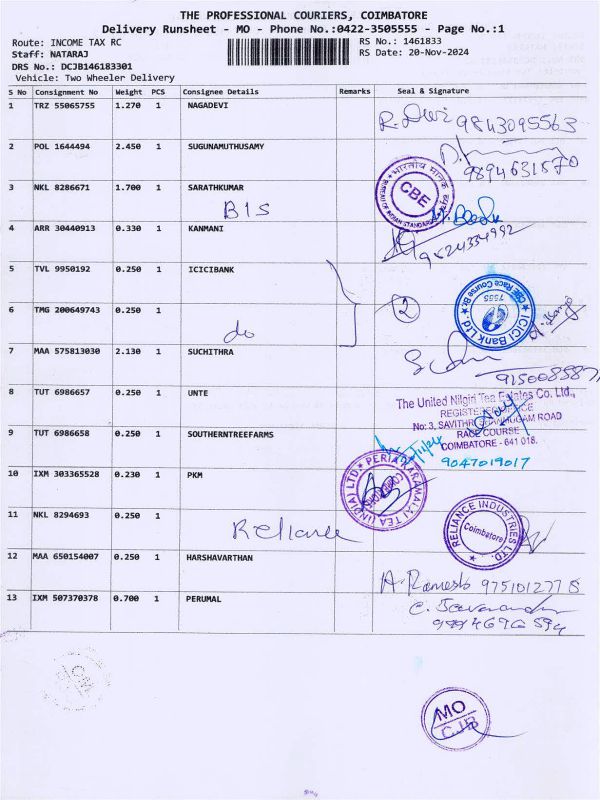 THE PROFESSIONAL COURIERS, COIMBATORE
Delivery Runsheet - MO - Phone No.:0422-3505555 - Page No.:1
Route: INCOME TAX RC
RS No.: 1461833
Staff: NATARAJ
RS Date: 20-Nov-2024
DRS No.: DCJB146183301
Vehicle: Two Wheeler Delivery
S No Consignment No Weight PCS Consignee Details Remarks Seal & Signature
1 TRZ 55065755 1.270 1 NAGADEVI
R. Devi 9843095563
2 POL 1644494 2.450 1 SUGUNAMUTHUSAMY
9894631570
3 NKL 8286671 1.700 1 SARATHKUMAR
BIS
भारतीय मानक
BUREAU OF INDIAN STANDARDS
CBE
4 ARR 30440913 0.330 1 KANMANI
9524334992
5 TVL 9950192 0.250 1 ICICIBANK
6 TMG 200649743 0.250 1
do
2
ICICI Bank Ltd.
CBE Race Course Br.
7555
7 MAA 575813030 2.130 1 SUCHITHRA
8 TUT 6986657 0.250 1 UNTE
The United Nilgiri Tea Estates Co. Ltd.,
REGISTERED OFFICE
No: 3, SAVITHRI SHANMUGAM ROAD
RACE COURSE
COIMBATORE - 641 018.
9047019017
9 TUT 6986658 0.250 1 SOUTHERNTREEFARMS
10 IXM 303365528 0.230 1 PKM
PERIA KARAMALAI TEA (INDIA) LTD.
11 NKL 8294693 0.250 1
Reliance
RELIANCE INDUSTRIES LTD.
Coimbatore
12 MAA 650154007 0.250 1 HARSHAVARTHAN
A. Ramesh 9751012778
13 IXM 507370378 0.700 1 PERUMAL
MO
CJB